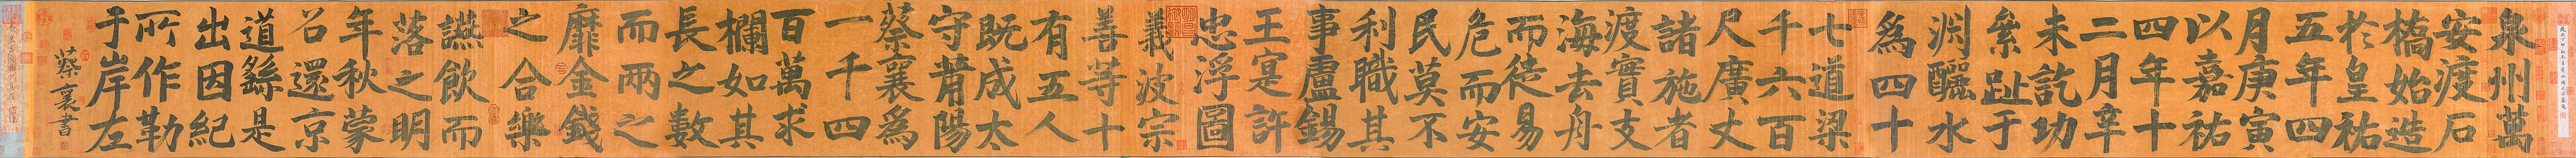 泉州萬
安渡石
橋始造
於皇祐
五年四
月庚寅
以嘉祐
四年十
二月辛
未訖功
絫趾于
淵釃水
為四十
七道梁
千六百
尺廣丈
諸施者
渡實支
海去舟
而徒易
危而安
民莫不
利職其
事盧錫
王寔許
忠浮圖
義波宗
善等十
有五人
既成太
守莆陽
蔡襄為
一千四
百萬求
欄如其
長之數
而兩之
靡金錢
之合樂
讌飲而
落之明
年秋蒙
召還京
道繇是
出因紀
所作勒
于岸左
蔡襄書